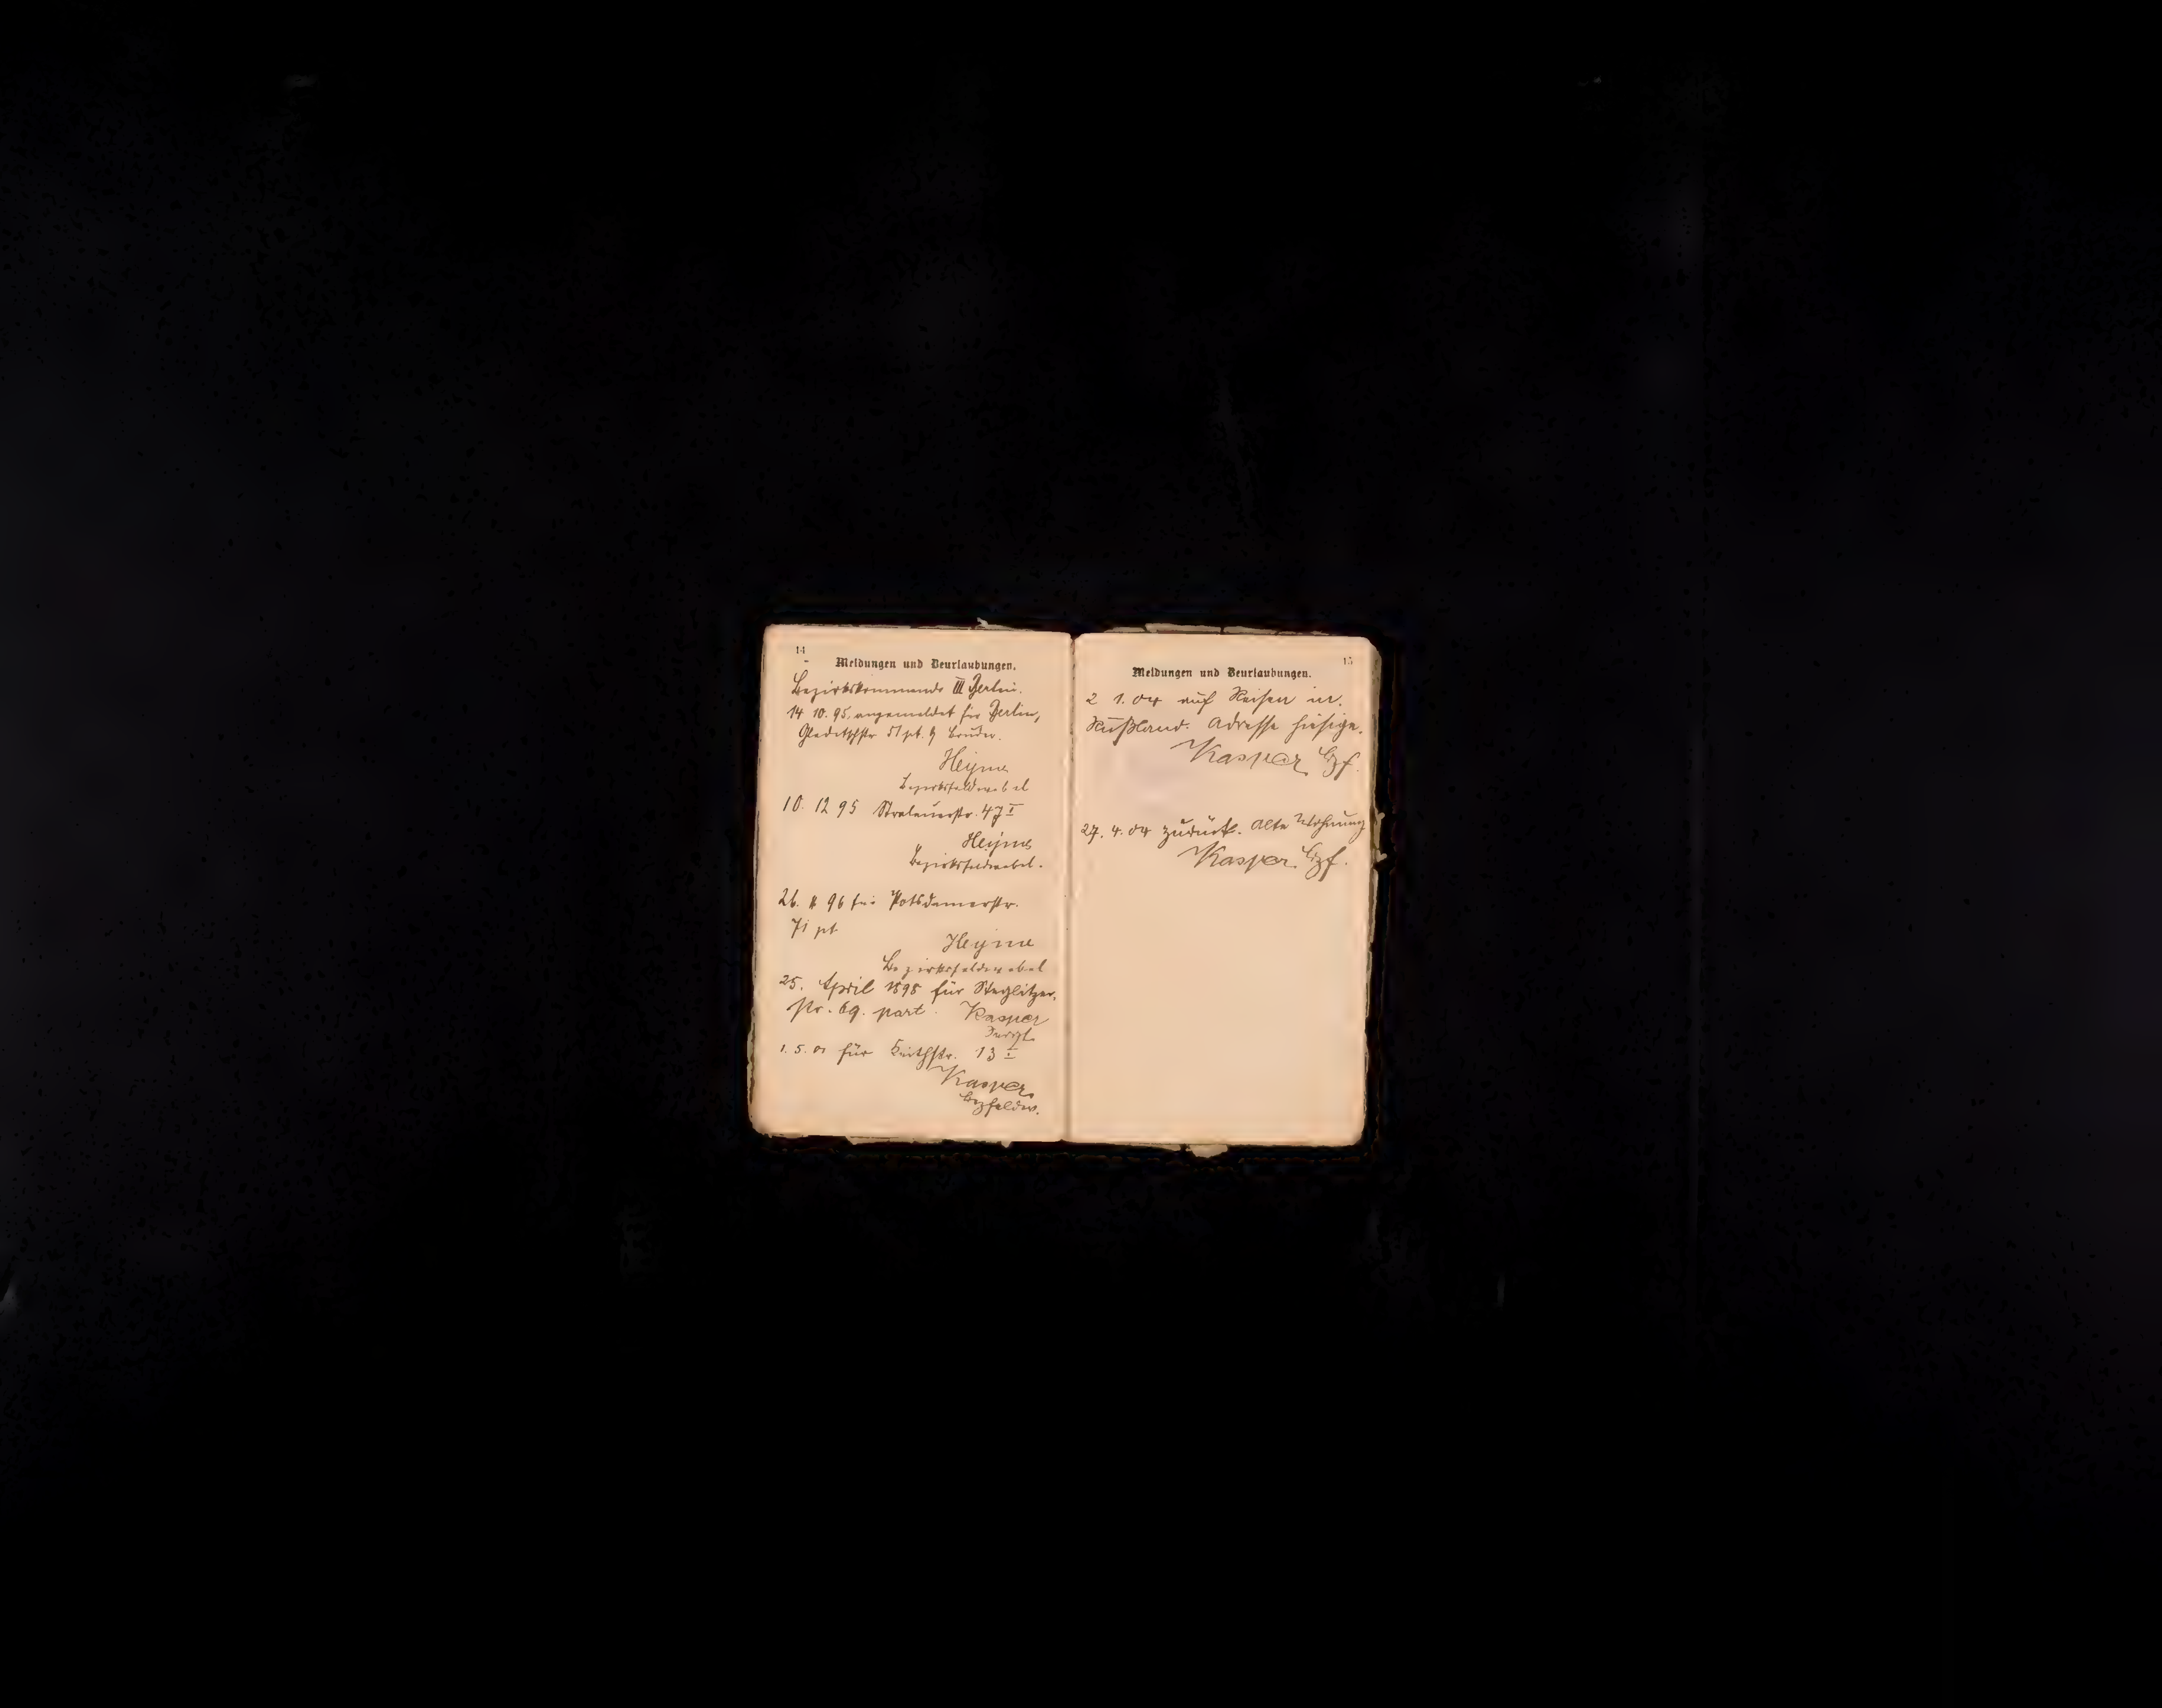 14
Meldungen und Beurlaubungen.
Bezirkskommando III Berlin.
14 10. 95. angemeldet für Berlin,
Gleditschstr 51 pt. b Bruder.
Heyme
Bezirksfeldwebel
10. 12 95 Stralauerstr. 47 I
Heyme
Bezirksfeldwebel.
26. 96 für Potsdamerstr.
71 pt
Heyme
Bezirksfeldwebel
25. April 1898 für Steglitzer.
str. 69. part. Kasper
1. 5. 01 für 13 I
Kasper
Bezfeldw.
15
Meldungen und Beurlaubungen.
2 1. 04 auf Reisen in.
Rußland. Adresse hiesige.
Kasper Bzf.
27. 4. 04 zurück. Alte Wohnung
Kasper Bzf.